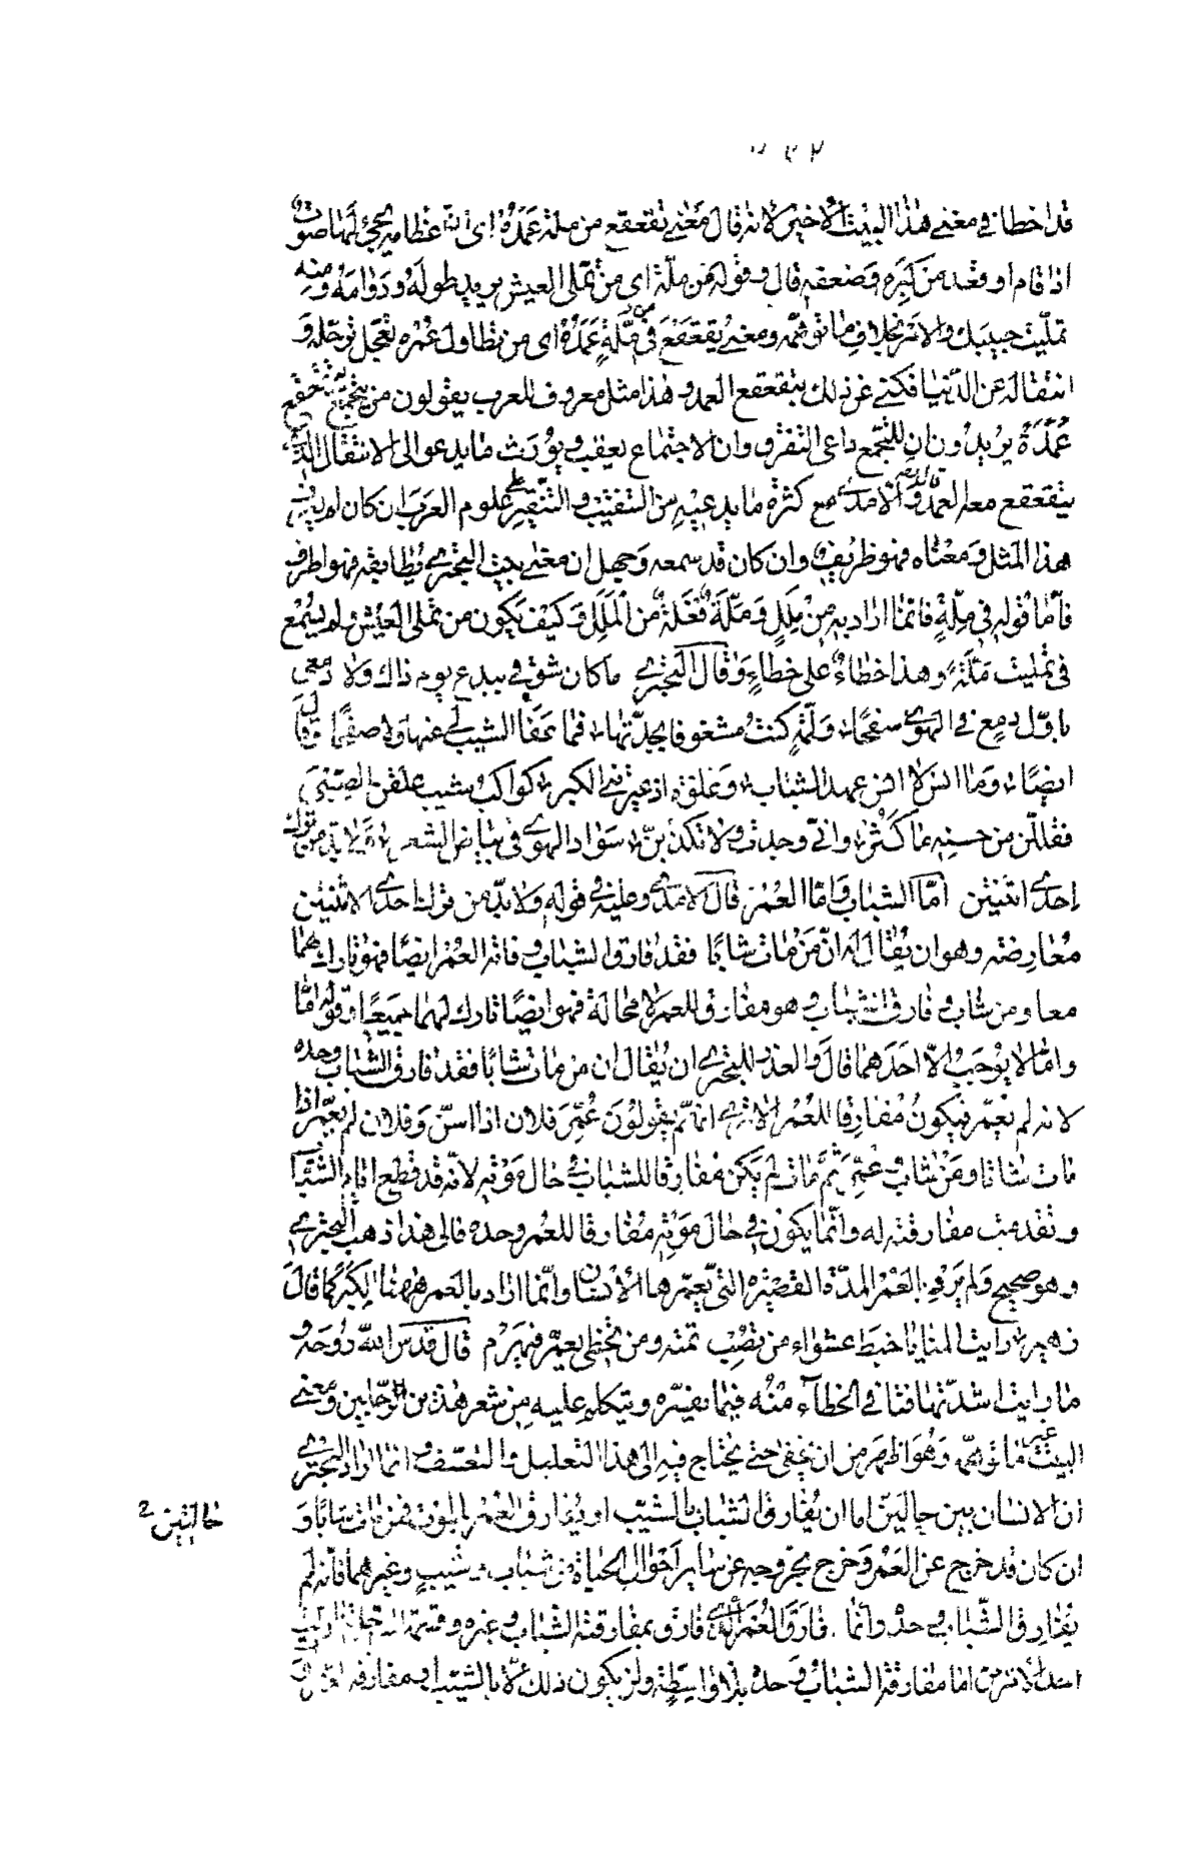 قد اخطا في معنى هذا البيت الاخير لانه قال معنى تقعقع من ملة عمده اى ان عظامه يجئ لها صوت
اذا قام او قعد من كبره وضعفه قال وقوله من ملة اى من تملى العيش يريد طوله ودوامه ومنه
تمليت حبيبك والامر بخلاف ما توهمه ومعنى يقعقع في ملة عمده اى من تطاول عمره تعجل ترحله و
انتقاله عن الدنيا فكنى عن ذلك بتقعقع العمد وهذا مثل معروف للعرب يقولون من يتجمع يتقعقع
عمده يريدون ان التجمع داعى التفرق وان الاجتماع يعقب ويورث ما يدعو الى الانتقال الذى
يتقعقع معه العمد والآمدى مع كثرة ما يدعيه من التفتيب والتنقير على علوم العرب ان كان لم
هذا المثل ومعناه فهو ظريف وان كان قد سمعه وجهل ان معنى بيت البحترى يطابقه فهو اطرف
فاما قوله في ملة فانما اراد به من ملل وملة فعلة من الملل وكيف يكون من تملى العيش ولم يسمع
في تمليت ملة وهذا خطاء على خطاء وقال البحترى ما كان شوقى ببدع يوم ذاك ولا دمعى
باول دمع في الهوى سفحا ولمة كنت مشغوفا بجدتها فما عفا الشيب لى عنها ولا صفحا وقال
ايضا وما انس لا انس عهد الشباب وعلوة اذ عيرتنى الكبر كواكب شيب علقن الصبى
فقللن من حسنه ما كثر وانى وجدت ولا تكذبن سواد الهوى في بياض الشعر ولا بد من ترك
احدى اثنتين اما الشباب واما العمر قال الآمدى وعليه في قوله ولا بد من ترك احدى الاثنتين
معارضة وهو ان يقال له ان من مات شابا فقد فارق الشباب وفاته العمر ايضا فهو تارك لهما
معا ومن شاب فارق الشباب وهو مفارق للعمر لا محالة فهو ايضا تارك لهما جميعا وقوله اما
واما لا يوجب الا احدهما قال والعذر للبحترى ان يقال ان من مات شابا فقد فارق الشباب وحده
لانه لم يعمر فيكون مفارقا للعمر الا ترى انهم يقولون عمر فلان اذا اسن وفلان لم يعمر اذا
مات شابا ومن شاب وعمر ثم مات لم يكن مفارقا للشباب في حال موته لانه قد قطع ايام الشباب
وتقدمت مفارقته له وانما يكون في حال موته مفارقا للعمر وحده فالى هذا ذهب البحترى
وهو صحيح ولم يرد بالعمر المدة القصيرة التى يعمرها الانسان وانما اراد بالعمر ههنا الكبر كما قال
زهير رايت المنايا خبط عشواء من تصب تمته ومن تخطى يعمر فيهرم قال قدس الله روحه و
ما رايت اشد تهافتا في الخطآء منه فيما يفسره ويتكلم عليه من شعر هذين الرجلين ومعنى
البيت غير ما توهمه وهو اظهر من ان يخفى حتى يحتاج فيه الى هذا التعليل والتعسف وانما اراد البحترى
ان الانسان بين حالين اما ان يفارق الشباب بالشيب او يفارق العمر بالموت فمن مات شابا و
حالتين
ان كان قد خرج عن العمر وخرج بخروجه عن ساير احوال الحياة من شباب وشيب وغيرهما فانه لم
يفارق الشباب وحده وانما فارق العمر الذى فارق بمفارقته الشباب وغيره وقسمة
احد الامرين اما مفارقة الشباب وحده بلا واسطة ولن يكون ذلك الا بالشيب او مفارقة